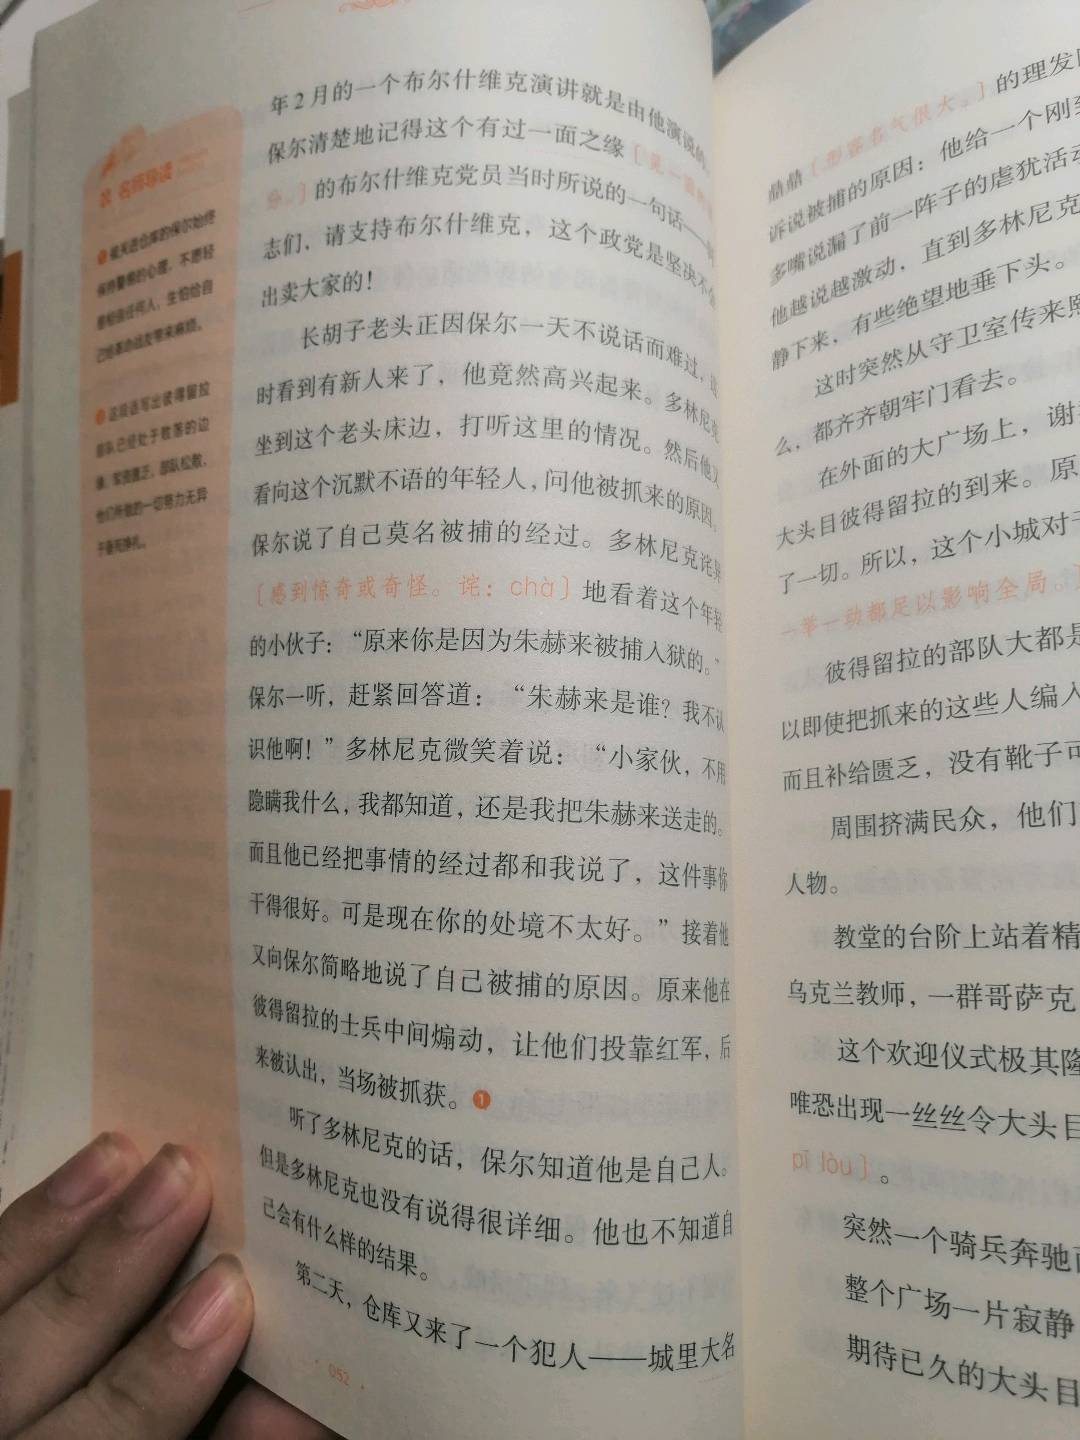 名师导读
❶被关进仓库的保尔始终
保持警惕的心理，不愿轻
意相信任何人，生怕给自
己给革命战友带来麻烦。
这段话写出彼得留拉
部队已经处于散落的边
缘：军资匮乏，部队松散，
他们所做的一切努力无异
于垂死挣扎。
年2月的一个布尔什维克演讲就是由他演说的
保尔清楚地记得这个有过一面之缘〔见一面的
分。〕的布尔什维克党员当时所说的一句话——
志们，请支持布尔什维克，这个政党是坚决不会
出卖大家的！
长胡子老头正因保尔一天不说话而难过，
时看到有新人来了，他竟然高兴起来。多林尼克
坐到这个老头床边，打听这里的情况。然后他又
看向这个沉默不语的年轻人，问他被抓来的原因。
保尔说了自己莫名被捕的经过。多林尼克诧异
〔感到惊奇或奇怪。诧：chà〕地看着这个年轻
的小伙子：“原来你是因为朱赫来被捕入狱的。”
保尔一听，赶紧回答道：“朱赫来是谁？我不认
识他啊！”多林尼克微笑着说：“小家伙，不用
隐瞒我什么，我都知道，还是我把朱赫来送走的。
而且他已经把事情的经过都和我说了，这件事你
干得很好。可是现在你的处境不太好。”接着他
又向保尔简略地说了自己被捕的原因。原来他在
彼得留拉的士兵中间煽动，让他们投靠红军，后
来被认出，当场被抓获。❶
听了多林尼克的话，保尔知道他是自己人。
但是多林尼克也没有说得很详细。他也不知道自
己会有什么样的结果。
第二天，仓库又来了一个犯人——城里大名
·052·
鼎鼎〔形容名气很大。〕的理发
诉说被捕的原因：他给一个刚
多嘴说漏了前一阵子的虐犹活动
他越说越激动，直到多林尼克
静下来，有些绝望地垂下头。
这时突然从守卫室传来
么，都齐齐朝牢门看去。
在外面的大广场上，谢
大头目彼得留拉的到来。原
了一切。所以，这个小城对
一举一动都足以影响全局。
彼得留拉的部队大都是
以即使把抓来的这些人编入
而且补给匮乏，没有靴子可
周围挤满民众，他们
人物。
教堂的台阶上站着精
乌克兰教师，一群哥萨克
这个欢迎仪式极其隆
唯恐出现一丝丝令大头目
pī lòu〕。
突然一个骑兵奔驰而
整个广场一片寂静
期待已久的大头目